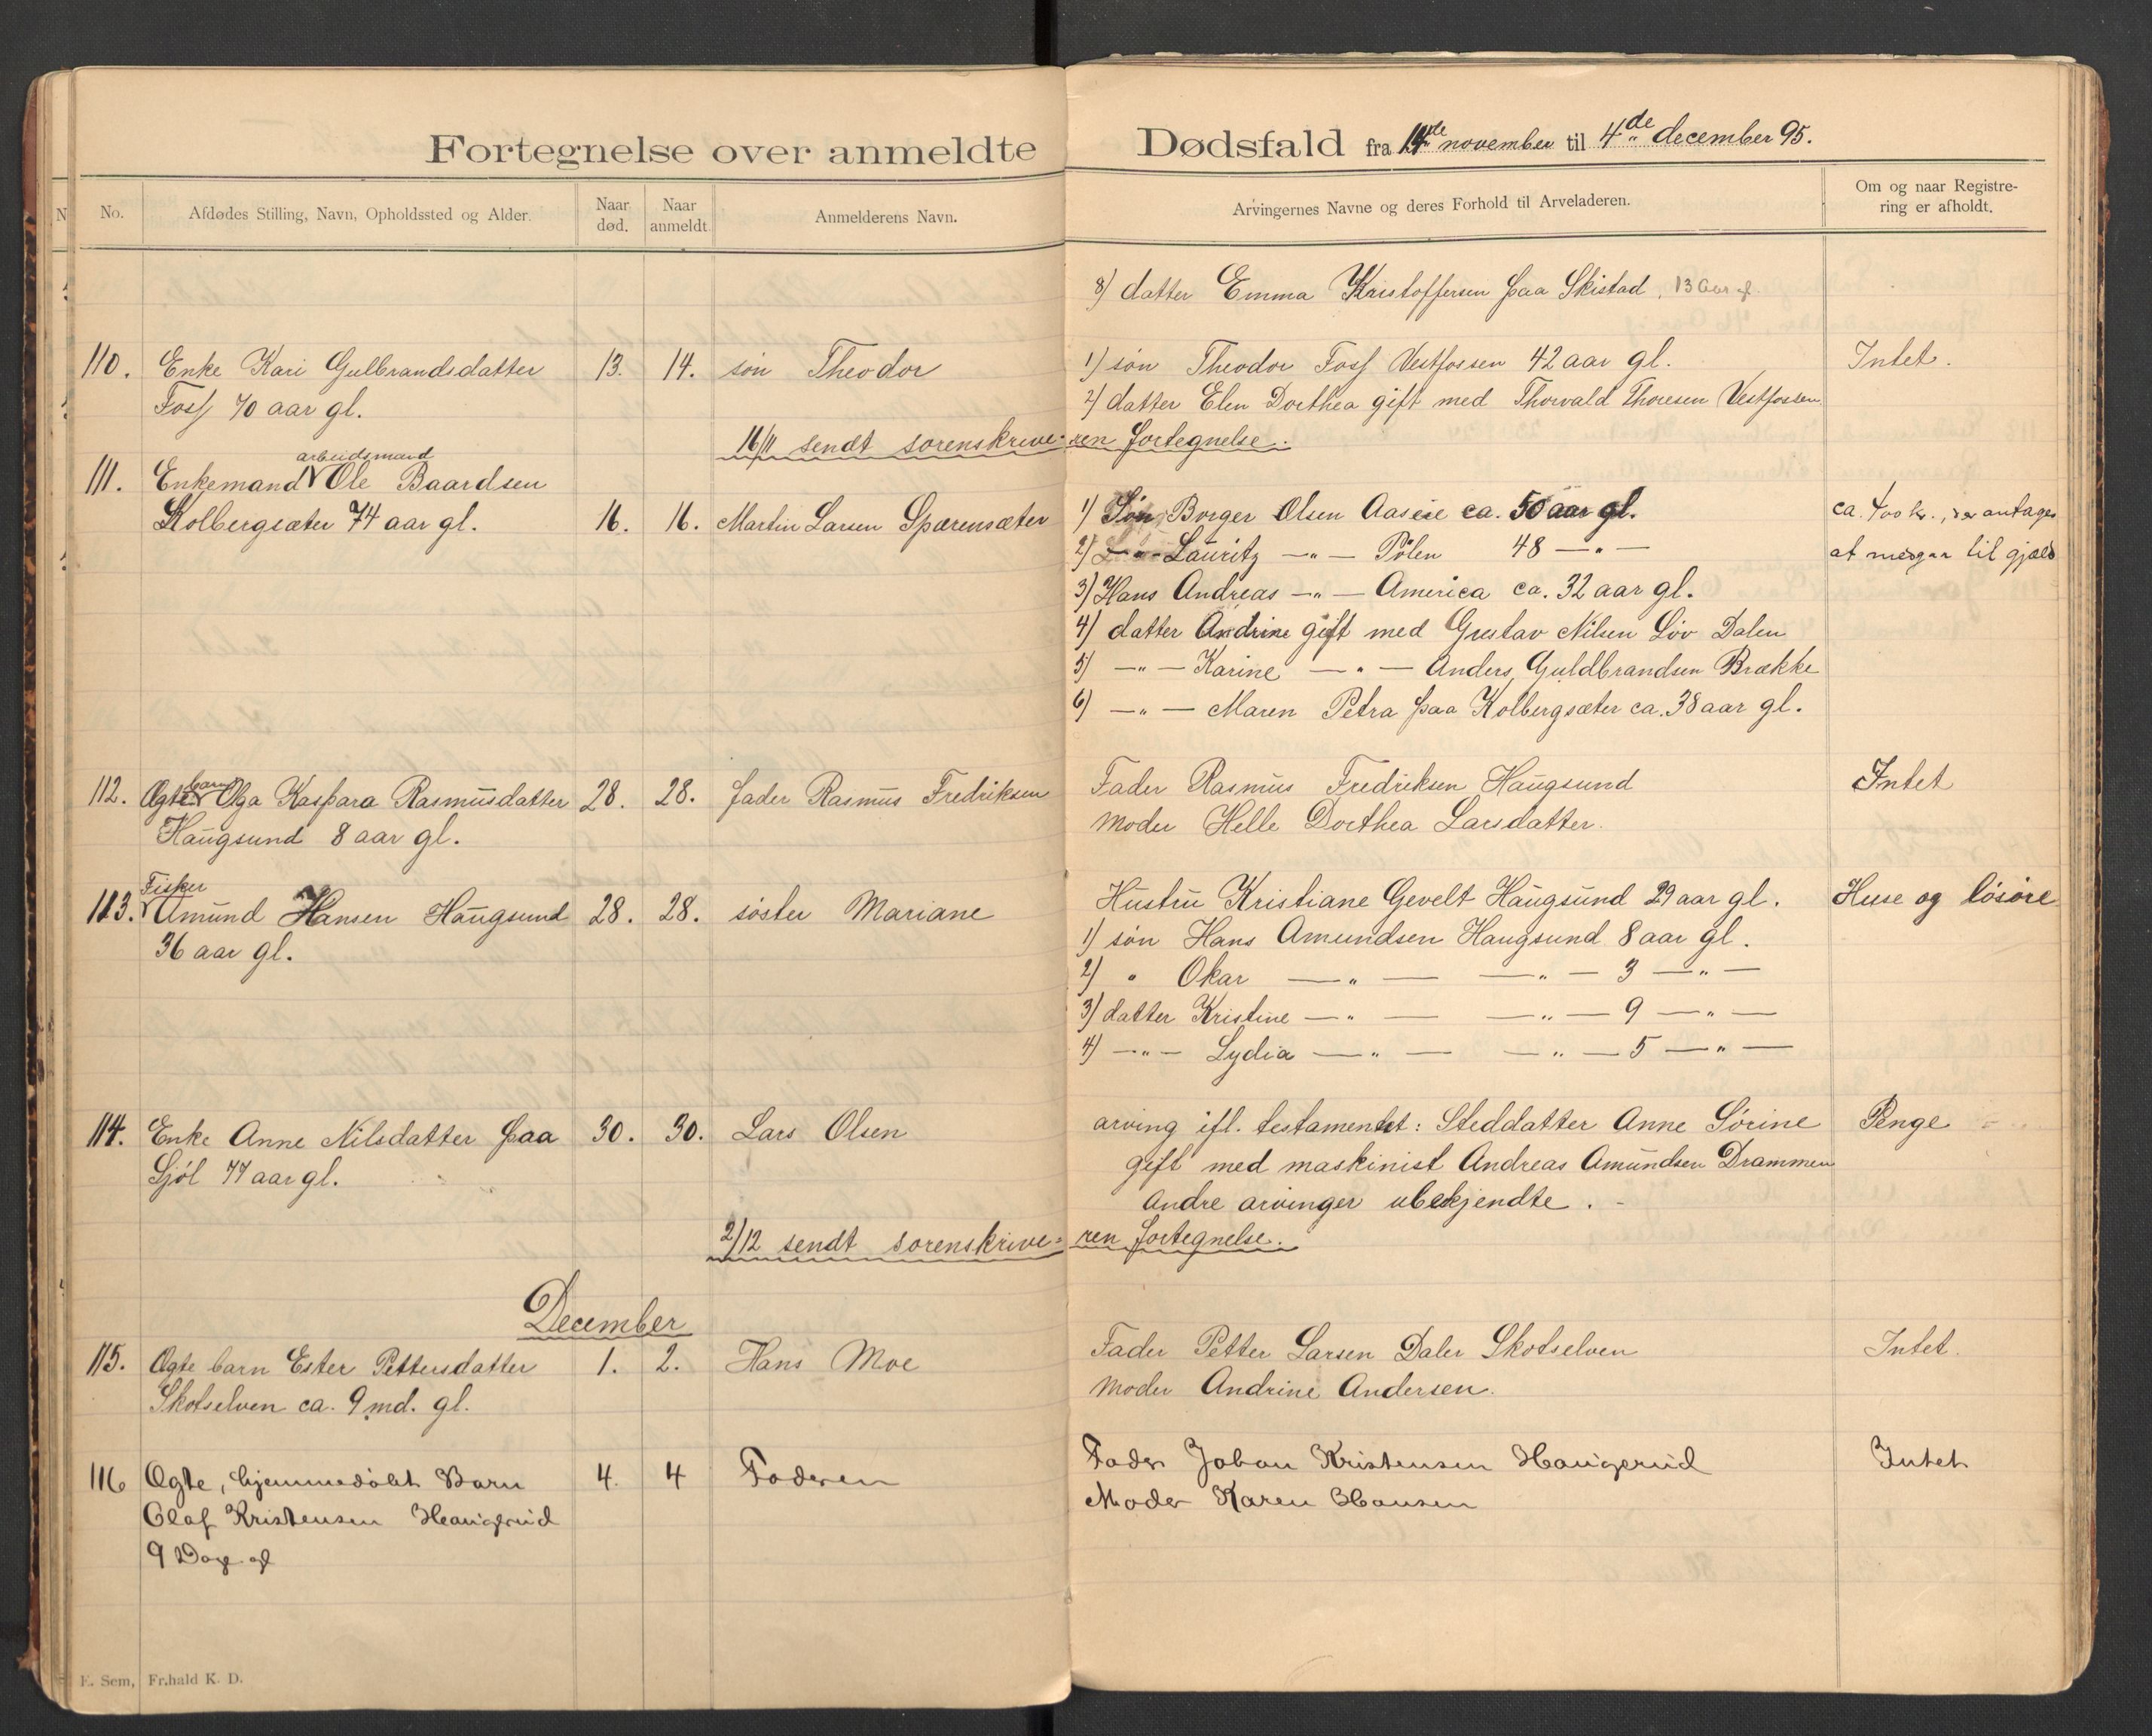 Fortegnelse over anmeldte Dødsfald fra 14de november til 4de december 95.
N No. Afdødes Stilling, Navn, Opholdssted og Alder. Naar død. Naar anmeldt. Anmelderens Navn. Arvingernes Navne og deres Forhold til Arveladeren. Om og naar Registrering er afholdt.
8) datter Emma Kristoffersen paa Skistad, 13 Aar gl.
110. Enke Kari Gulbrandsdatter 13. 14. søn Theodor 1) søn Theodor Foss Vestfossen 42 aar gl. Intet.
Foss 70 aar gl. 2) datter Elen Dorthea gift med Thorvald Thoresen Vestfossen
16/11 sendt sorenskriveren fortegnelse.
arbeidsmand
111. Enkemand Ole Baardsen
Kolbergsæter 74 aar gl. 16. 16. Martin Larsen Spærensæter 1) Søn Borger Olsen Aaseie ca. 50 aar gl. ca. 400 kr., der antages
2) — " — Lauritz — " — Pölen 48 — " — at medgaa til gjæld
3) Hans Andreas — " — America ca. 32 aar gl.
4) datter Andrine gift med Gustav Nilsen Löv Dalen
5) — " — Karine — " — Anders Guldbrandsen Brække
6) — " — Maren Petra paa Kolbergsæter ca. 38 aar gl.
barn
112. Ægte Olga Kaspara Rasmusdatter 28. 28. fader Rasmus Fredriksen Fader Rasmus Fredriksen Haugsund Intet
Haugsund 8 aar gl. moder Helle Dorthea Larsdatter.
Fisker
113. Amund Hansen Haugsund 28. 28. søster Mariane Hustru Kristiane Gevelt Haugsund 29 aar gl. Huse og løsøre
36 aar gl. 1) søn Hans Amundsen Haugsund 8 aar gl.
2) " Okar — " — — " — 3 — " —
3) datter Kristine — " — — " — 9 — " —
4) — " — Lydia — " — — " — 5 — " —
114. Enke Anne Nilsdatter paa 30. 30. Lars Olsen arving ifl. testamentet: Steddatter Anne Sørine Penge
Sjøl 77 aar gl. gift med maskinist Andreas Amundsen Drammen
Andre arvinger ubekjendte.
2/12 sendt sorenskriveren fortegnelse.
December
115. Ægte barn Ester Pettersdatter 1. 2. Hans Moe Fader Petter Larsen Daler Skotselven Intet.
Skotselven ca. 9 md. gl. moder Andrine Andersen.
116 Ægte, hjemmedøbt Barn 4. 4 Faderen Fader Johan Kristensen Haugerud Intet
Olaf Kristensen Haugerud Moder Karen Hansen
9 Dage gl
E. Sem, Fr.hald K. D.